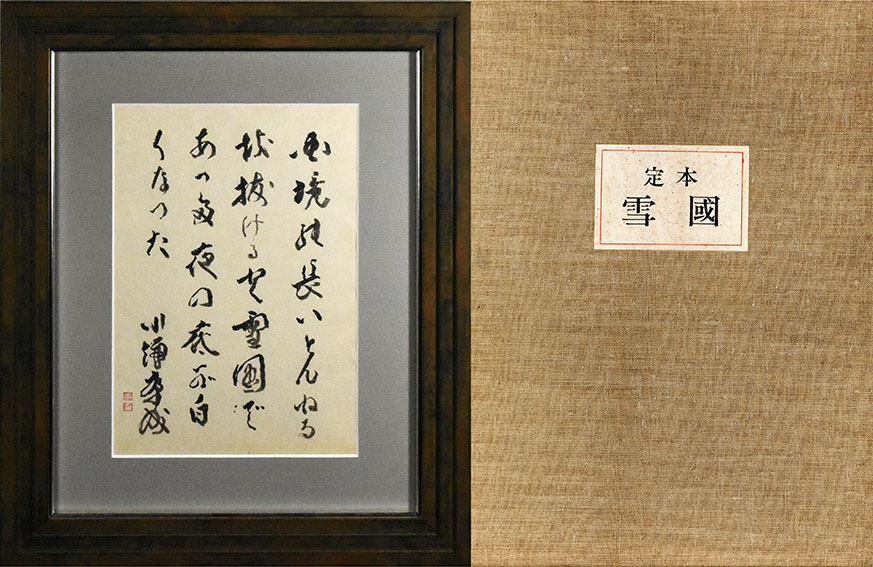 国境の長いとんねる
を抜けると雪國で
あつた夜の底が白
くなつた
川端康成
定本
雪國